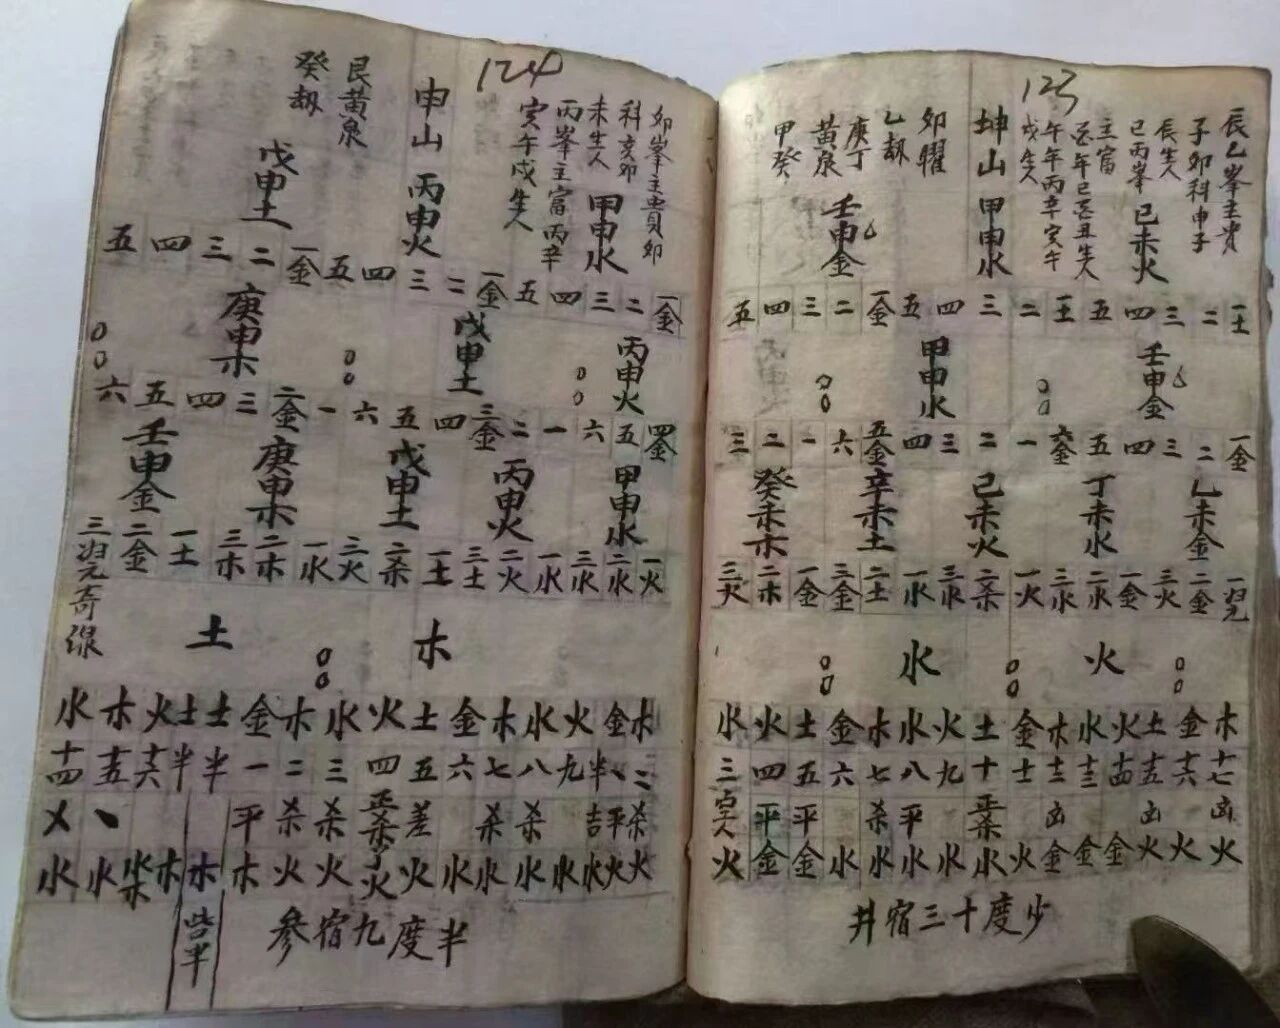 123
辰乙峯主貴
子卯科申子
辰生人
巳丙峯
己未火
主富
年巳酉丑生人
午年丙辛寅午
戌生人
坤山 甲申水
卯曜
乙劫
庚丁
黄泉
甲癸
壬申金
一土 二 三 四 五 一土 二 三 四 五 一金 二 三 四 五
壬申金 甲申水
一金 二 三 四 五 六金 一 二 三 四 五金 六 一 二 三
乙未金 丁未水 己未火 辛未土 癸未木
一归元 二金 三火 一金 二水 三水 一火 二杀 三水 一水 二土 三金 一金 二木 三火
火 水
木 金 土 火 水 木 金 土 火 水 木 金 土 火 水
十七 十六 十五 十四 十三 十二 十一 十 九 八 七 六 五 四 三
凶 凶 凶 正杀 平 杀 平 平 空亡
火 火 火 金 金 金 火 水 水 水 水 水 金 金 火
井宿三十度少
124
卯峯主貴卯
科亥卯
未生人
甲申水
丙峯主富丙辛
寅午戌生人
申山 丙申火
艮黄泉
癸劫
戊申土
一金 二 三 四 五 一金 二 三 四 五 一金 二 三 四 五
丙申火 戊申土 庚申木
四金 五 六 一 二 三金 四 五 六 一 二金 三 四 五 六
甲申水 丙申火 戊申土 庚申木 壬申金
一火 二水 三水 一水 二火 三土 一土 二杀 三火 一水 二木 三木 一土 二金 三归元奇缐
木 土
木 金 火 水 木 金 土 火 水 木 金 土 土 火 木 水
二 一 半 九 八 七 六 五 四 三 二 一 半 半 十六 十五 十四
杀 平 吉 杀 杀 差 正杀 杀 杀 平
火 火 水 水 水 水 水 火 火 火 火 木 木 木 水 水 水
些半
参宿九度半